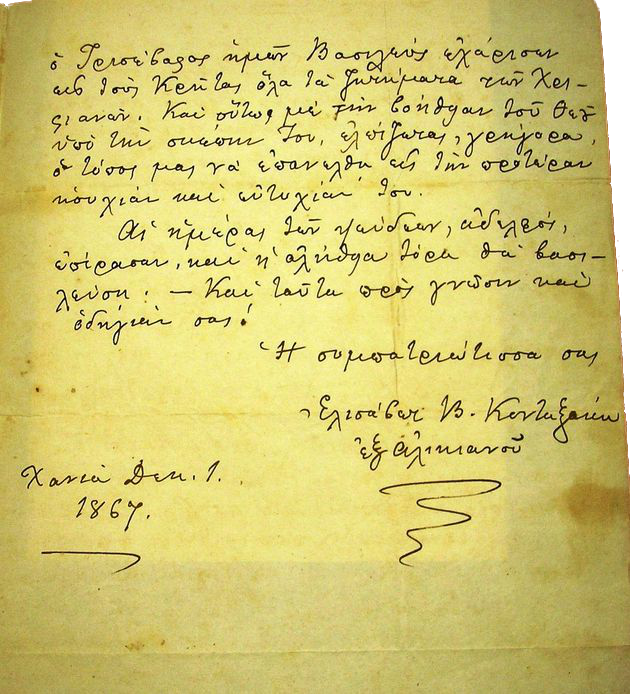 ὁ Τρισέβαστος ἡμῶν Βασιλεύς ἐχάρισεν
εἰς τοὺς Κρῆτας ὅλα τὰ ζητήματα τῶν Χρι-
στιανῶν. Καὶ οὕτω μὲ τὴν βοήθειαν τοῦ Θεοῦ
ὑπὸ τὴν σκέπην του, ἐλπίζοντας, γρήγορα,
ὁ τόπος μας νὰ ἐπανέλθῃ εἰς τὴν προτέραν
ἡσυχίαν καὶ εὐτυχίαν του.
Αἱ ἡμέραι τῶν ψευδέων, ἀδελφοί,
ἐπέρασαν, καὶ ἡ ἀλήθεια τόρα θὰ βασι-
λεύση. — Καὶ ταῦτα πρὸς γνῶσιν καὶ
ὁδηγίαν σας!
Ἡ συμπατριώτισσα σας
Ἐλισάβετ Β. Κονταξάκη
ἐξ Ἀλικιανοῦ
Χανιὰ Δεκ. 1.
1867.